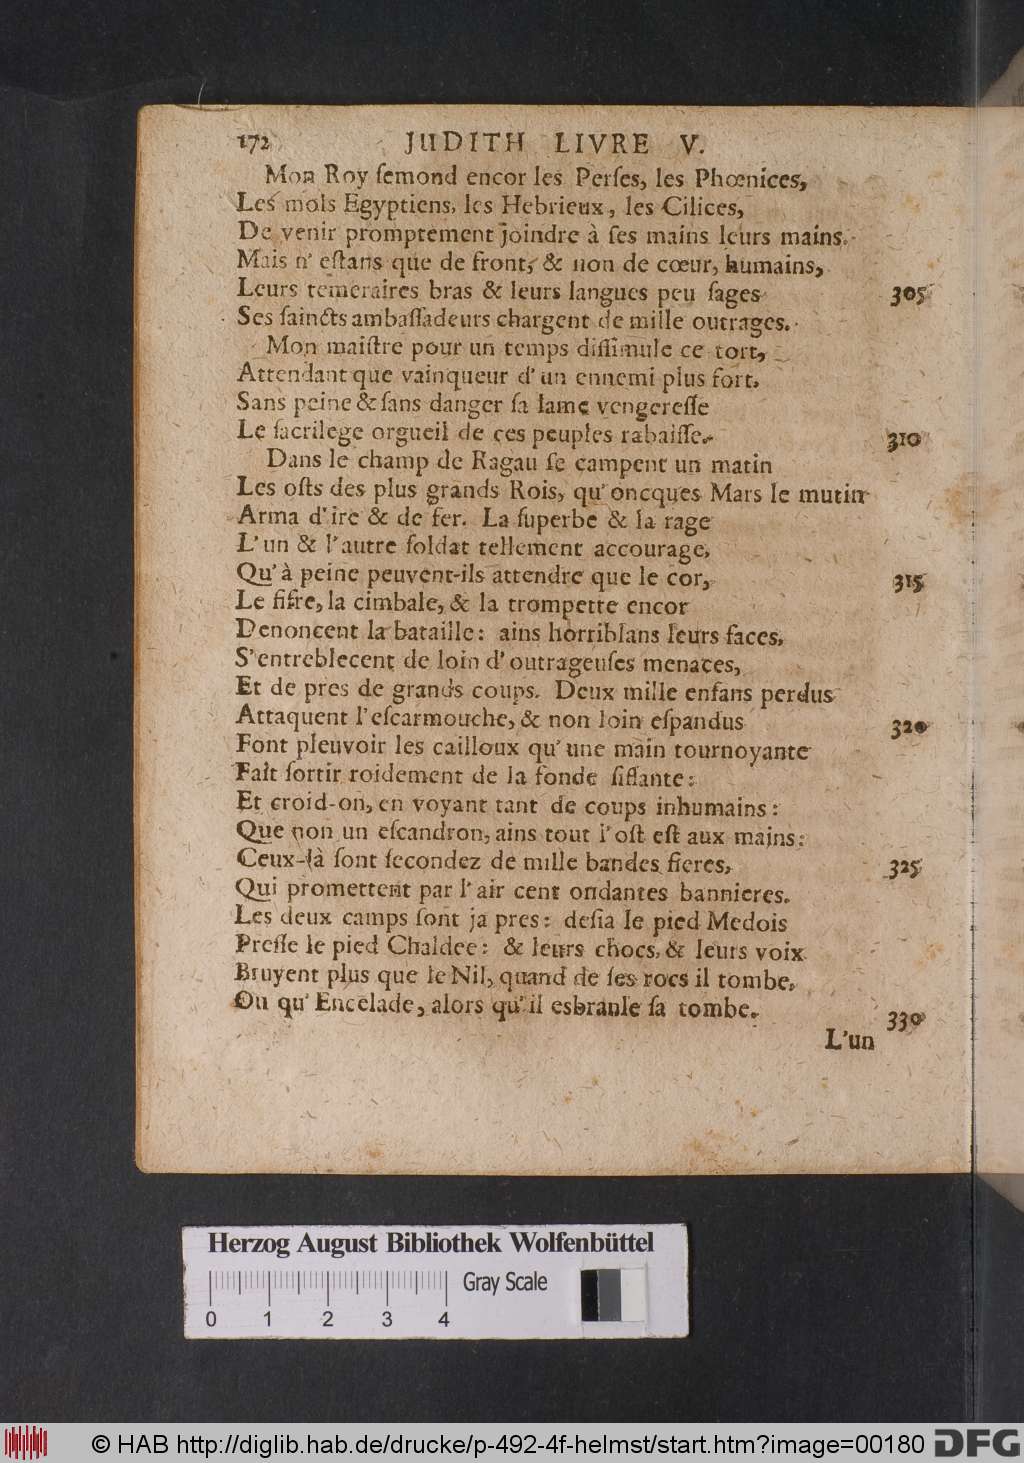 172 JUDITH LIVRE V.
Mon Roy ſemond encor les Perſes, les Phœnices,
Les mols Egyptiens, les Hebrieux, les Cilices,
De venir promptement joindre à ſes mains leurs mains.
Mais n'eſtans que de front, & non de cœur, humains,
Leurs temeraires bras & leurs langues peu ſages 305
Ses ſaincts ambaſſadeurs chargent de mille outrages.
Mon maiſtre pour un temps diſſimule ce tort,
Attendant que vainqueur d'un ennemi plus fort,
Sans peine & ſans danger ſa lame vengereſſe
Le ſacrilege orgueil de ces peuples rabaiſſe. 310
Dans le champ de Ragau ſe campent un matin
Les oſts des plus grands Rois, qu'oncques Mars le mutin
Arma d'ire & de fer. La ſuperbe & la rage
L'un & l'autre ſoldat tellement accourage,
Qu'à peine peuvent-ils attendre que le cor, 315
Le fifre, la cimbale, & la trompette encor
Denoncent la bataille: ains horriblans leurs faces,
S'entreblecent de loin d'outrageuſes menaces,
Et de pres de grands coups. Deux mille enfans perdus
Attaquent l'eſcarmouche, & non loin eſpandus 320
Font pleuvoir les cailloux qu'une main tournoyante
Fait ſortir roidement de la fonde ſiflante:
Et croid-on, en voyant tant de coups inhumains:
Que non un eſcandron, ains tout l'oſt eſt aux mains:
Ceux-là ſont ſecondez de mille bandes fieres, 325
Qui promettent par l'air cent ondantes bannieres.
Les deux camps ſont ja pres: deſia le pied Medois
Preſſe le pied Chaldee: & leurs chocs, & leurs voix
Bruyent plus que le Nil, quand de ſes rocs il tombe,
Ou qu'Encelade, alors qu'il esbranle ſa tombe. 330
L'un
Herzog August Bibliothek Wolfenbüttel
Gray Scale
0 1 2 3 4
© HAB http://diglib.hab.de/drucke/p-492-4f-helmst/start.htm?image=00180 DFG